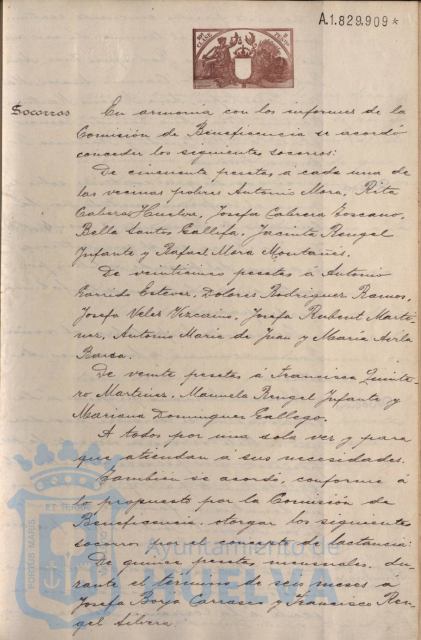 A.1.829.909*
Socorros
En armonia con los informes de la
Comisión de Beneficencia se acordó
conceder los siguientes socorros:
De cincuenta pesetas á cada una de
las vecinas pobres Antonia Mora, Rita
Cabeza Huelva, Josefa Cabrera Toscano,
Bella Santos Gallifa, Jacinta Rengel
Infante y Rafael Mora Montañes.
De veinticinco pesetas á Antonio
Garrido Estevez, Dolores Rodriguez Ramos,
Josefa Velez Vizcaino, Josefa Rubent Marti-
nez, Antonia Maria de Juan y Maria
Barca.
De veinte pesetas á Francisca Quinte-
ro Martinez, Manuela Rengel Infante y
Mariana Dominguez Gallego.
A todos por una sola vez y para
que atiendan á sus necesidades.
Tambien se acordó, conforme á
lo propuesto por la Comisión de
Beneficencia, otorgar los siguientes
socorros por el concepto de lactancia:
De quince pesetas mensuales, du-
rante el término de seis meses á
Josefa Borja Carrasco y Francisco Ren-
gel Silvera.
PORTUS MARIS
ET TERRÆ
Ayuntamiento de
HUELVA